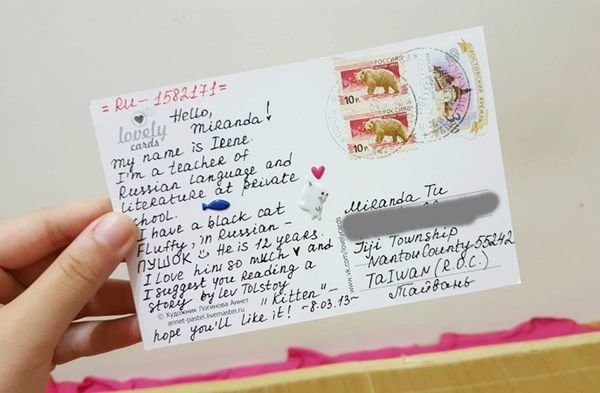 = RU - 1582171 =
lovely
cards
Hello,
Miranda!
My name is Irene.
I'm a teacher of
Russian Language and
Literature at private
school.
I have a black cat
Fluffy, in Russian -
ПУШОК He is 12 years.
I love him so much ♥ and
I suggest you reading a
story by Lev Tolstoy
"Kitten" -
hope you'll like it! ~8.03.13~
© Художник Логинова Аннет
annet-pastel.livemaster.ru
www.vk.com/lovelycards
РОССИЯ
10 р.
РОССИЯ
10 р.
РОСТОВСКИЙ КРЕМЛЬ
Miranda Tu
Jiji Township
Nantou County 55242
TAIWAN (R.O.C.)
Тайвань